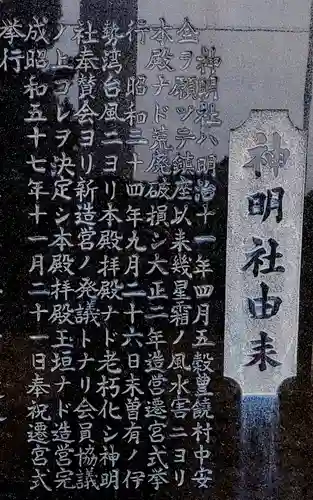 神明社由来
神明社ハ明治十一年四月五穀豊饒村中安
全ヲ願ツテ鎮座以来幾星霜ノ風水害ニヨリ
本殿ナド荒廃破損シ大正二年造営遷宮式挙
行　昭和三十四年九月二十六日末曽有ノ伊
勢湾台風ニヨリ本殿拝殿ナド老朽化シ神明
社奉賛会ヨリ新造営ノ発議トナリ会員協議
ノ上コレヲ決定シ本殿拝殿玉垣ナド造営完
成昭和五十七年十一月二十一日奉祝遷宮式
挙行